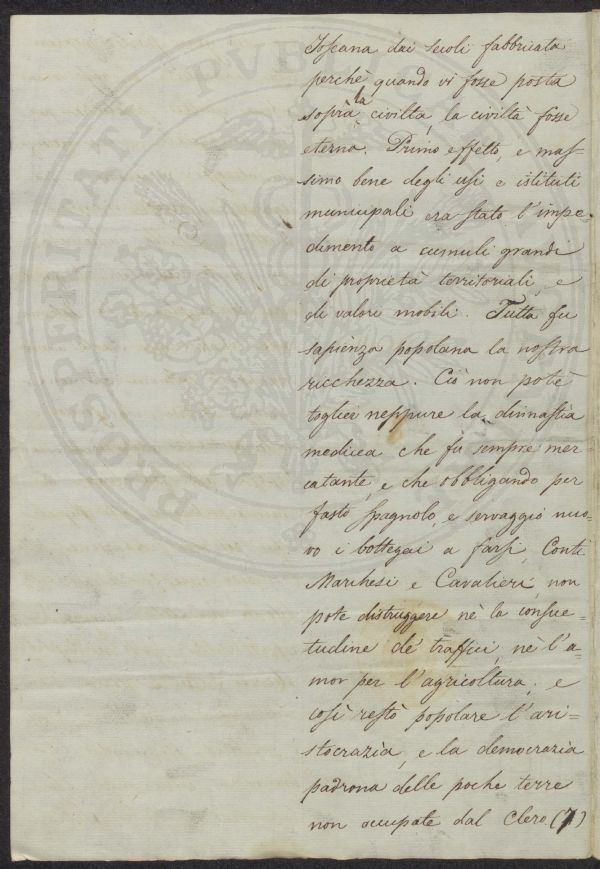 Toscana dai secoli fabbricata
perchè quando vi fosse posta
sopra la civiltà, la civiltà fosse
eterna. Primo effetto, e mas=
simo bene degli usi e istituti
municipali era stato l'impe=
dimento a cumuli grandi
di proprietà territoriali, e
di valori mobili. Tutta fu
sapienza popolana la nostra
ricchezza. Ciò non potè
toglier neppure la dinnastia
medicea che fù sempre mer=
catante, e che obbligando per
fasto Spagnolo, e servaggio nuo=
vo i bottegai a farsi Conti
Marchesi e Cavalieri, non
pote distruggere nè la consue=
tudine de' traffici, nè l'a=
mor per l'agricoltura; e
così restò popolare l'ari=
stocrazia, e la democrazia
padrona delle poche terre
non occupate dal Clero. (7)
PROSPERITATI
PVBLIC